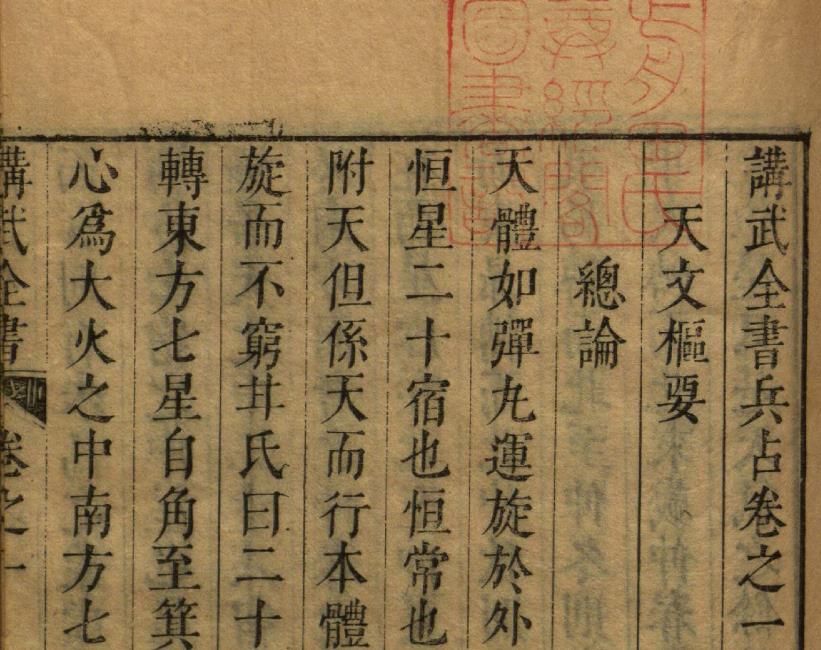 講武全書兵占卷之一
天文樞要
總論
天體如彈丸運旋於外
恒星二十宿也恒常也
附天但係天而行本體
旋而不窮甘氏曰二十
轉東方七星自角至箕
心爲大火之中南方七
講武全書 卷之一